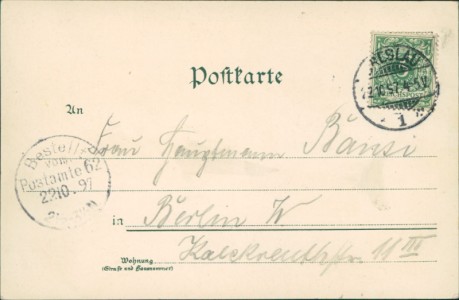 Postkarte
An
Frau Hauptmann Bansi
Bestellt
vom
Postamte 62
22.10.97
in Berlin W
Kalckreuthstr. 11 III
Wohnung
(Straße und Hausnummer)
BRESLAU
1